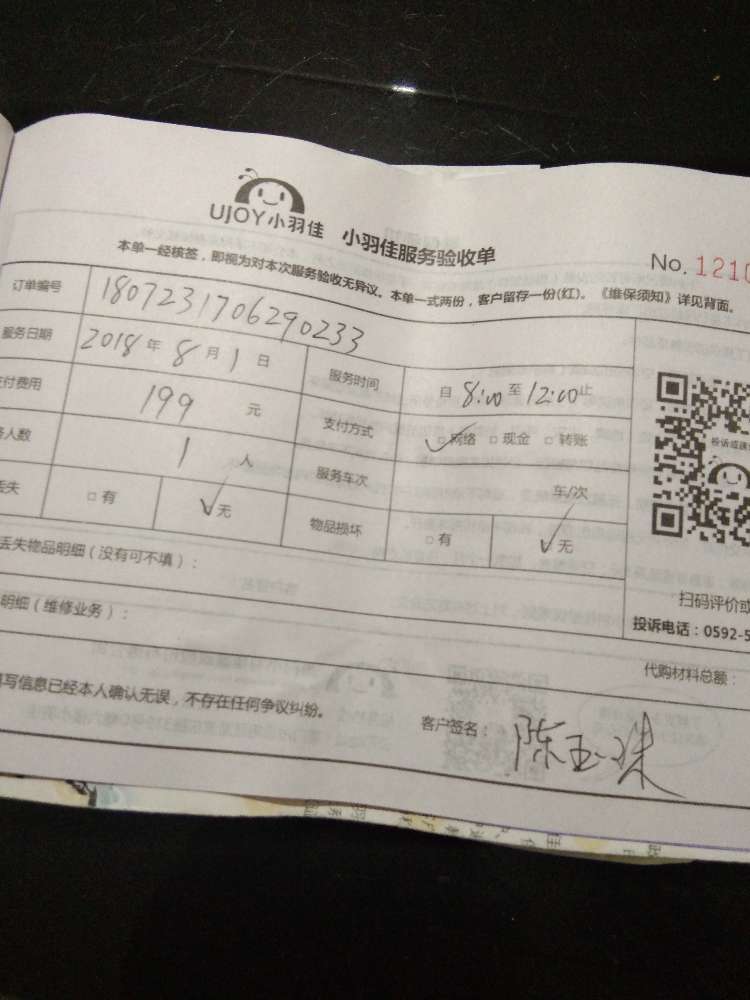 UJOY小羽佳 小羽佳服务验收单
No. 1210
本单一经核签，即视为对本次服务验收无异议。本单一式两份，客户留存一份(红)。《维保须知》详见背面。
订单编号 1807231706290233
服务日期 2018年8月1日 服务时间 自8:00至12:00止
付费用 199元 支付方式 ☑网络 □现金 □转账
人数 1人 服务车次 车/次
丢失 □有 ☑无 物品损坏 □有 ☑无
丢失物品明细（没有可不填）：
明细（维修业务）：
扫码评价或
投诉电话：0592-5
代购材料总额：
写信息已经本人确认无误，不存在任何争议纠纷。
客户签名：陈玉珠